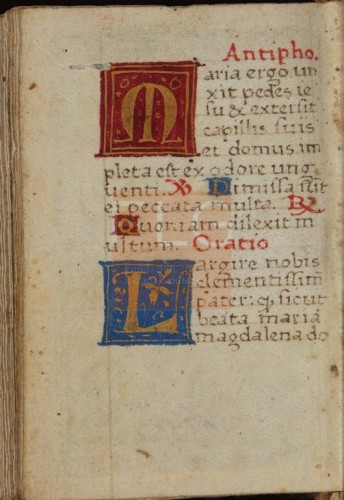 Antipho.
Maria ergo un
xit pedes ie
su & extersit
capillis suis
et domus im
pleta est ex odore ung
uenti. ℣ Dimissa sūt
ei peccata multa. ℟
Quoniam dilexit m
ultum. Oratio
Largire nobis
clementissim̄
pater: q, sicut
beata maria
magdalena do